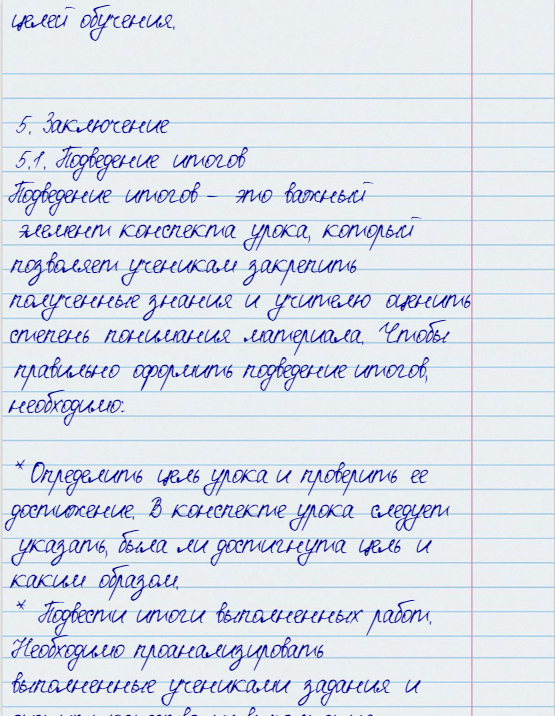 целей обучения.
5. Заключение
5.1. Подведение итогов
Подведение итогов – это важный
элемент конспекта урока, который
позволяет ученикам закрепить
полученные знания и учителю оценить
степень понимания материала. Чтобы
правильно оформить подведение итогов,
необходимо:
* Определить цель урока и проверить ее
достижение. В конспекте урока следует
указать, была ли достигнута цель и
каким образом.
* Подвести итоги выполненных работ.
Необходимо проанализировать
выполненные учениками задания и